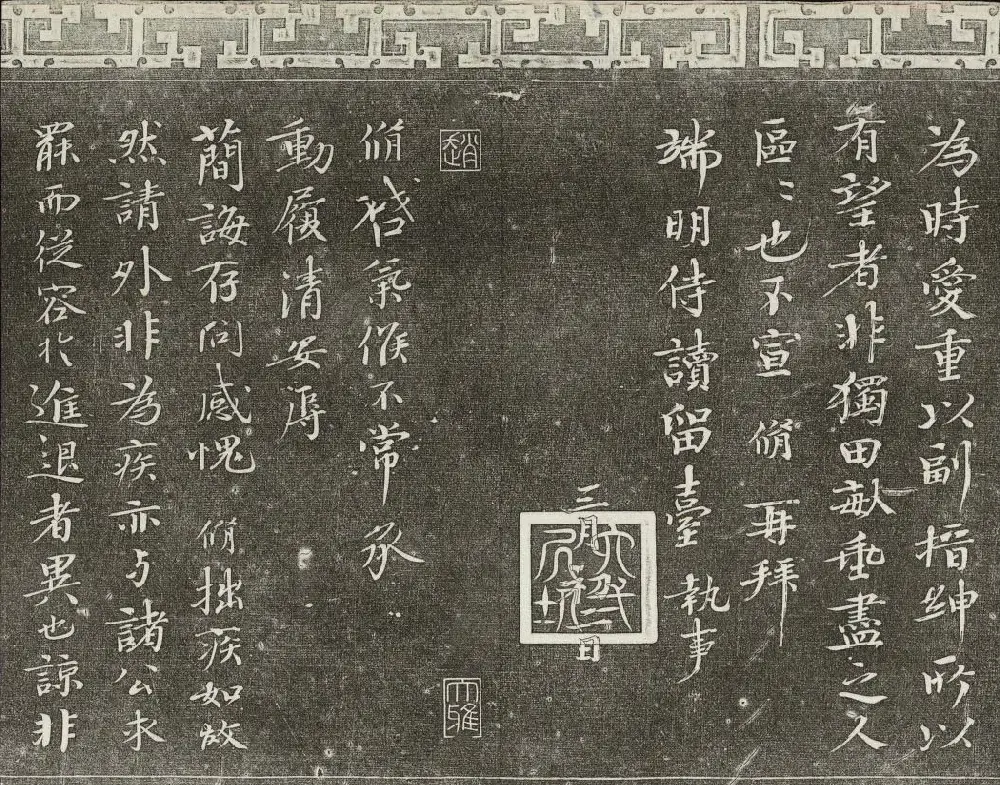 為時愛重以副搢紳所以
有望者非獨田畝垂盡之人
區〻也不宣 脩 再拜
端明侍讀留臺 執事
三月 日
趙
大雅
脩啓氣候不常承
動履清安辱
蕳誨存問感愧 脩拙疾如故
然請外非為疾亦与諸公求
罷而從容於進退者異也諒非